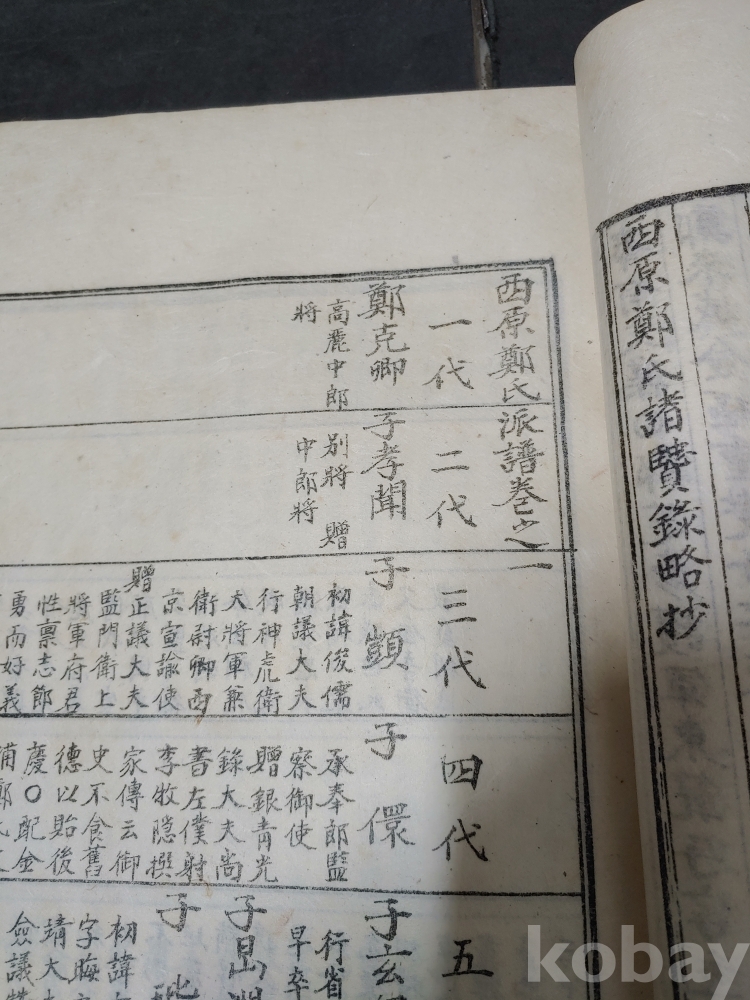 西原鄭氏諸賢錄略抄
西原鄭氏派譜卷之一
一代
鄭克卿
高麗中郎
將
二代
子孝聞
別將 贈
中郎將
三代
子 顗
初諱俊儒
朝議大夫
行神虎衛
大將軍兼
衛尉卿西
京宣諭使
贈正議大夫
監門衛上
將軍府君
性禀志節
勇而好義
四代
子 儇
承奉郎監
察御使
贈銀青光
錄大夫尚
書左僕射
李牧隐撰
家傳云御
史不食舊
德以貽後
慶〇配金
五
子玄
行省
早卒
子
子
初諱
字晦
靖大
僉議
kobay